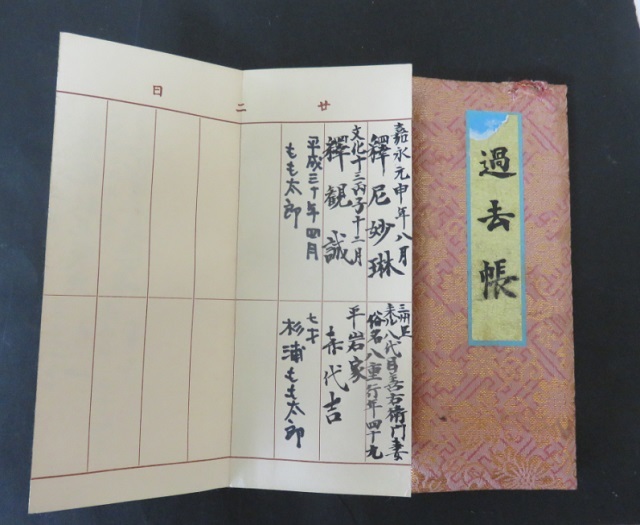 過去帳
廿二日
嘉永元申年八月
釋尼妙琳
八代目喜右衛門妻
俗名八重行年四十九
文化十三丙子十二月
釋観誠
平岩家
赤代吉
平成三十年四月
もも太郎
七才
杉浦もも太郎